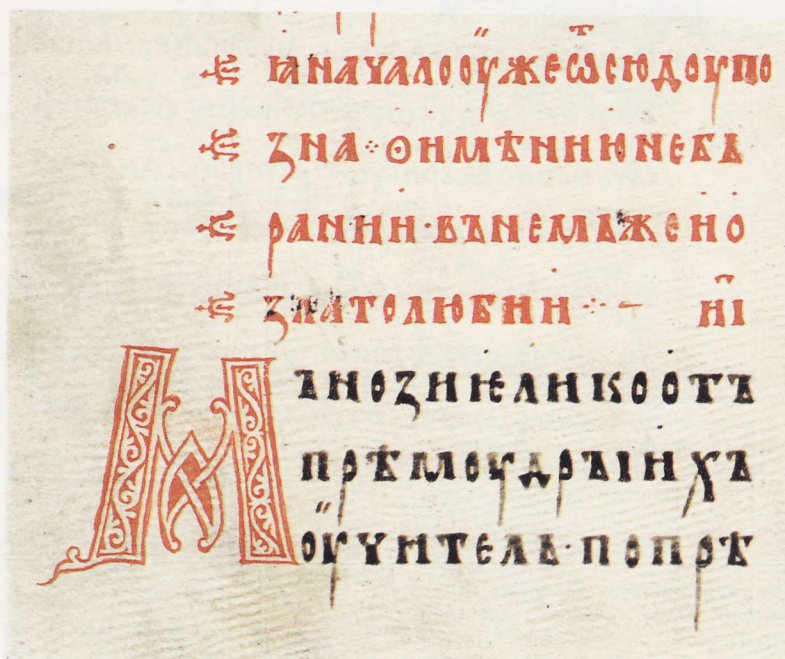 ꙗначалооужеѿсюдоупо
зна҂ ѳимѣниюневъ
рании·въnемьжено
златолюбии ⁘ – н҃і
Мъноꙁиѥликоотъ
прѣмоудрꙑихъ
оучитель·попрѣ